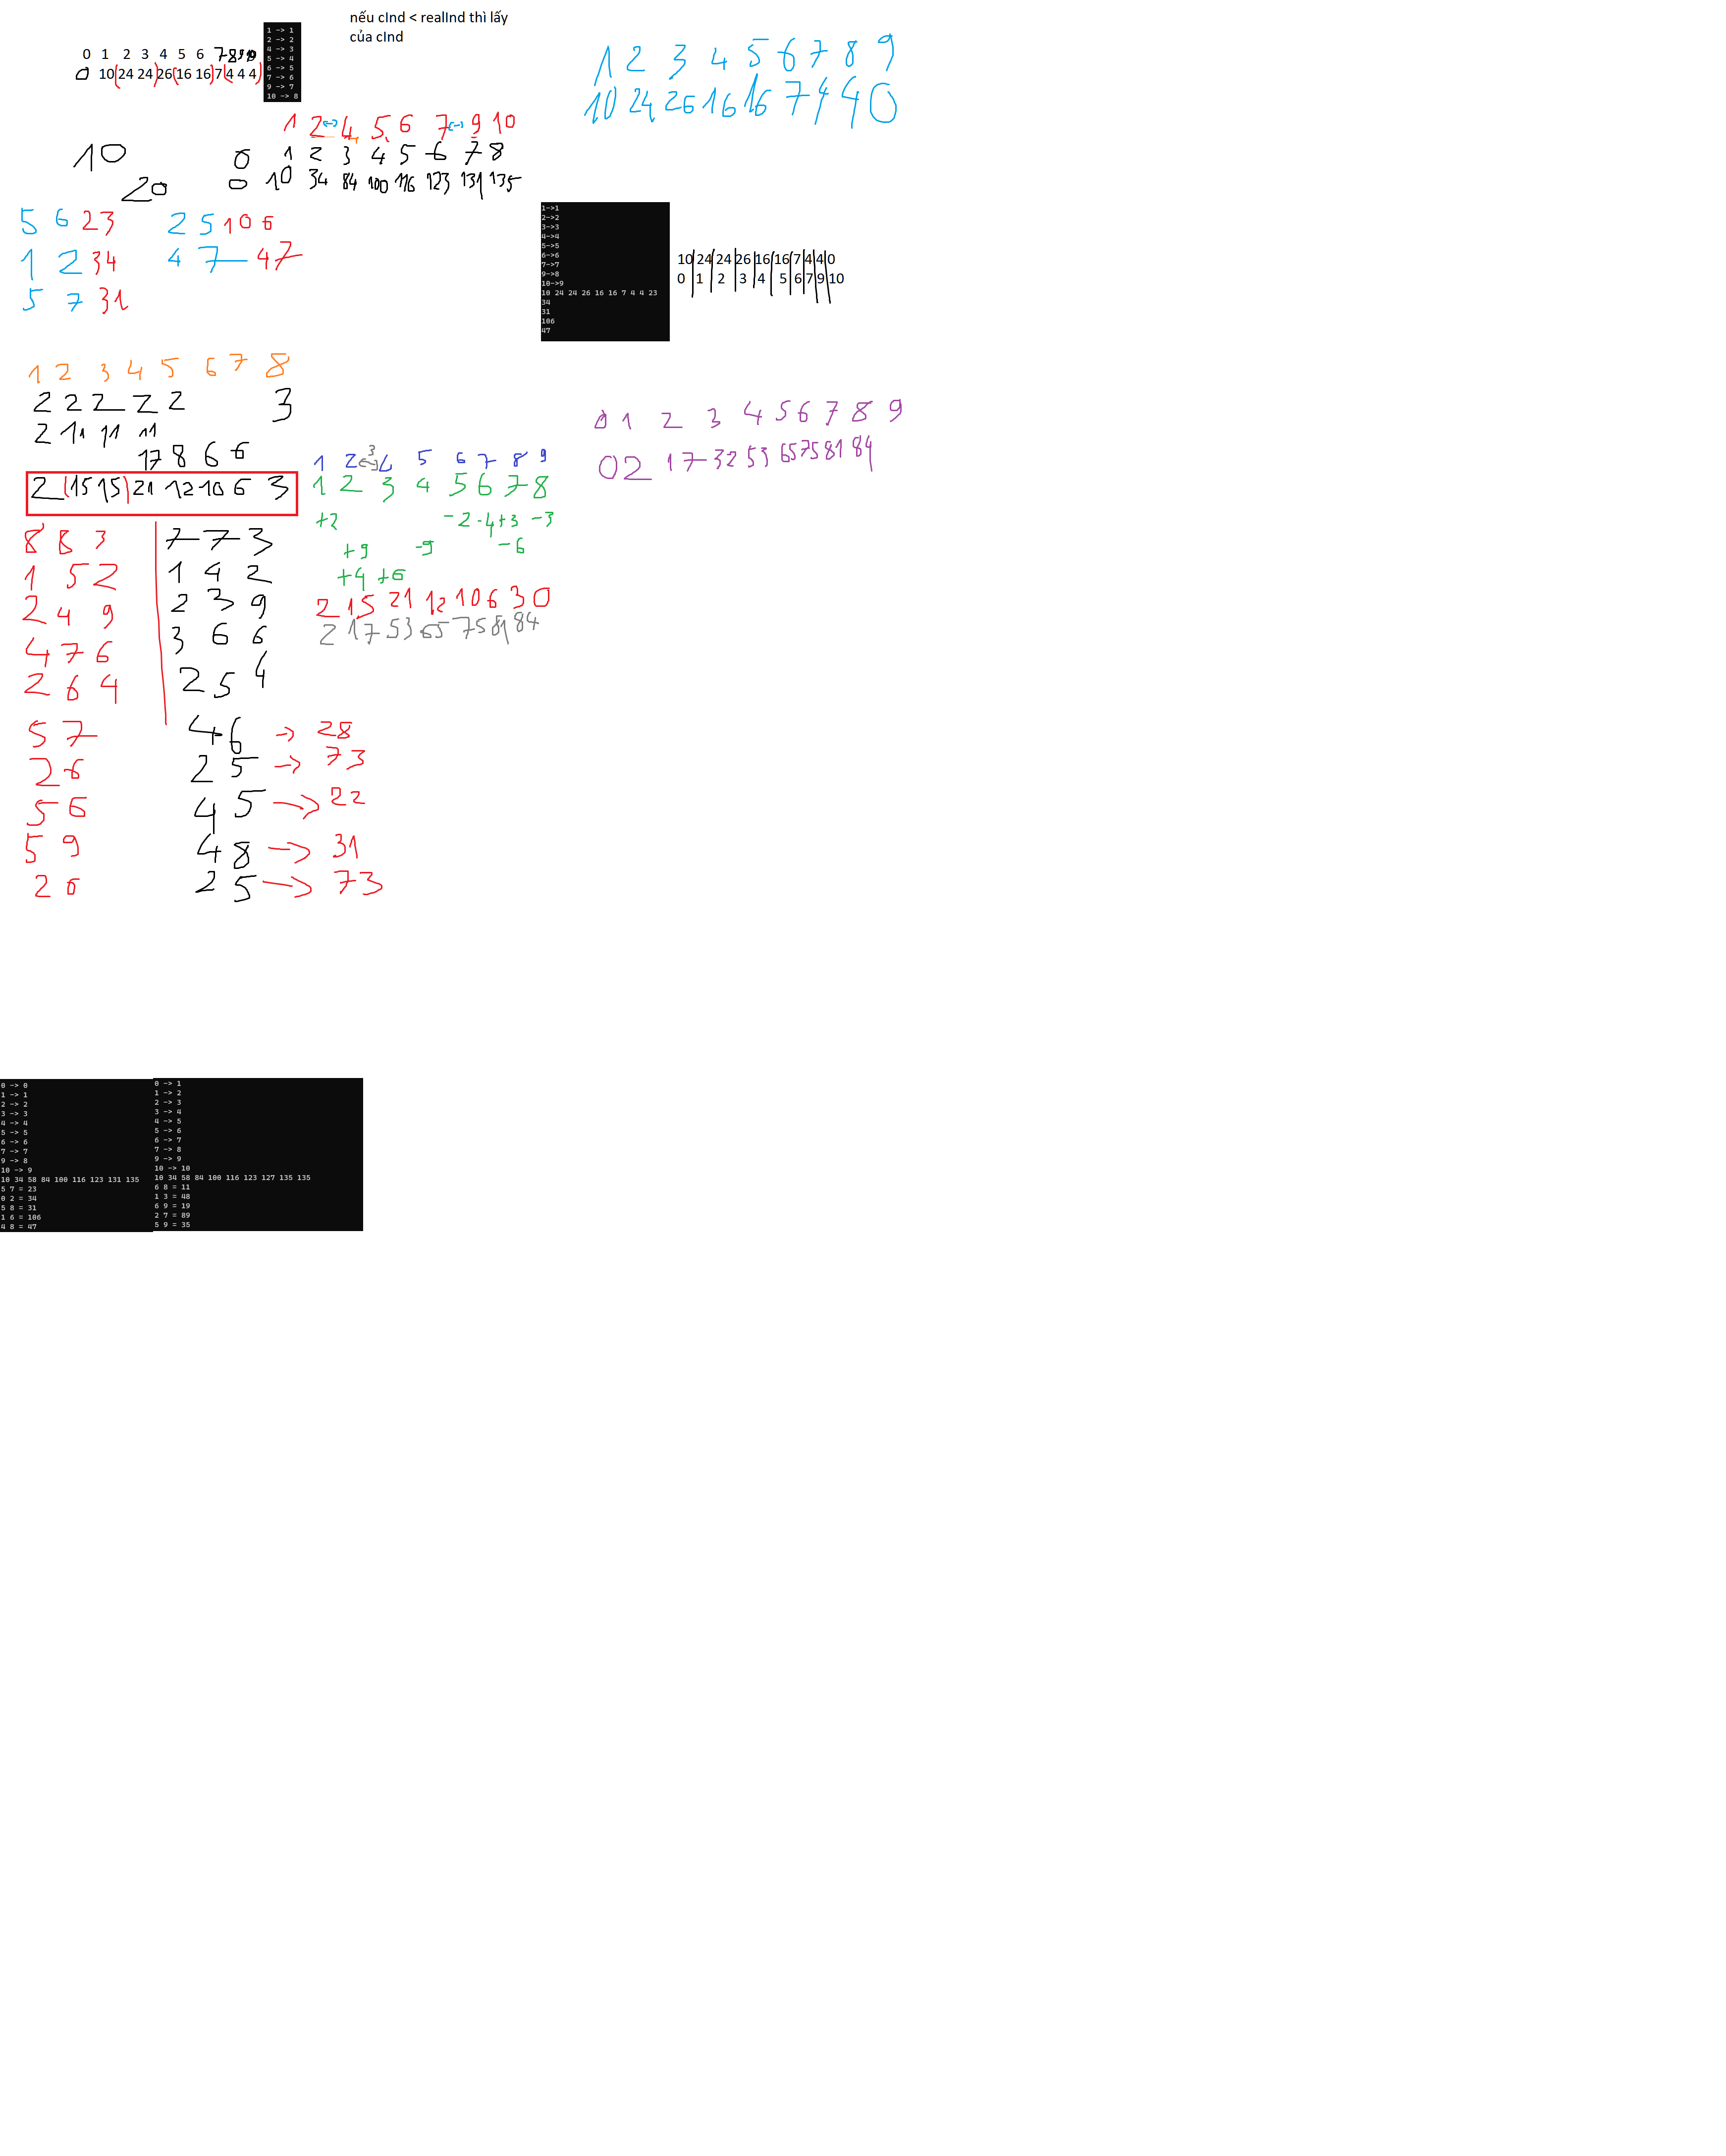 nếu cInd < realInd thì lấy
của cInd
0 1 2 3 4 5 6 7
0 10 (24 24) 26 (16 16) 7 (4 4 4)
1 -> 1
2 -> 2
4 -> 3
5 -> 4
6 -> 5
7 -> 6
9 -> 7
10 -> 8
1 2 3 4 5 6 7 8 9
10 24 26 16 16 7 4 4 0
1 2 4 5 6 7 9 10
0 1 2 3 4 5 6 7 8
0 10 34 84 100 116 123 131 135
10
20
5 6 23
1 2 34
5 7 31
2 5 106
4 7 47
1->1
2->2
3->3
4->4
5->5
6->6
7->7
9->8
10->9
10 24 24 26 16 16 7 4 4 23
34
31
106
47
10 24 24 26 16 16 7 4 4 0
0 1 2 3 4 5 6 7 9 10
1 2 3 4 5 6 7 8
2 2 2 2 2 3
2 11 11 11
17 8 6 6
2 (15 15) 21 12 10 6 3
8 8 3
1 5 2
2 4 9
4 7 6
2 6 4
7 7 3
1 4 2
2 3 9
3 6 6
2 5 4
5 7
2 6
5 6
5 9
2 6
4 6 -> 28
2 5 -> 73
4 5 -> 22
4 8 -> 31
2 5 -> 73
3
1 2 4 5 6 7 8 9
1 2 3 4 5 6 7 8
+2 -2 -4 +3 -3
+9 -9 -6
+4 +6
2 15 21 12 10 6 3 0
2 17 53 65 75 81 84
0 1 2 3 4 5 6 7 8 9
0 2 17 32 53 65 75 81 84
0 -> 0
1 -> 1
2 -> 2
3 -> 3
4 -> 4
5 -> 5
6 -> 6
7 -> 7
9 -> 8
10 -> 9
10 34 58 84 100 116 123 131 135
5 7 = 23
0 2 = 34
5 8 = 31
1 6 = 106
4 8 = 47
0 -> 1
1 -> 2
2 -> 3
3 -> 4
4 -> 5
5 -> 6
6 -> 7
7 -> 8
9 -> 9
10 -> 10
10 34 58 84 100 116 123 127 135 135
6 8 = 11
1 3 = 48
6 9 = 19
2 7 = 89
5 9 = 35